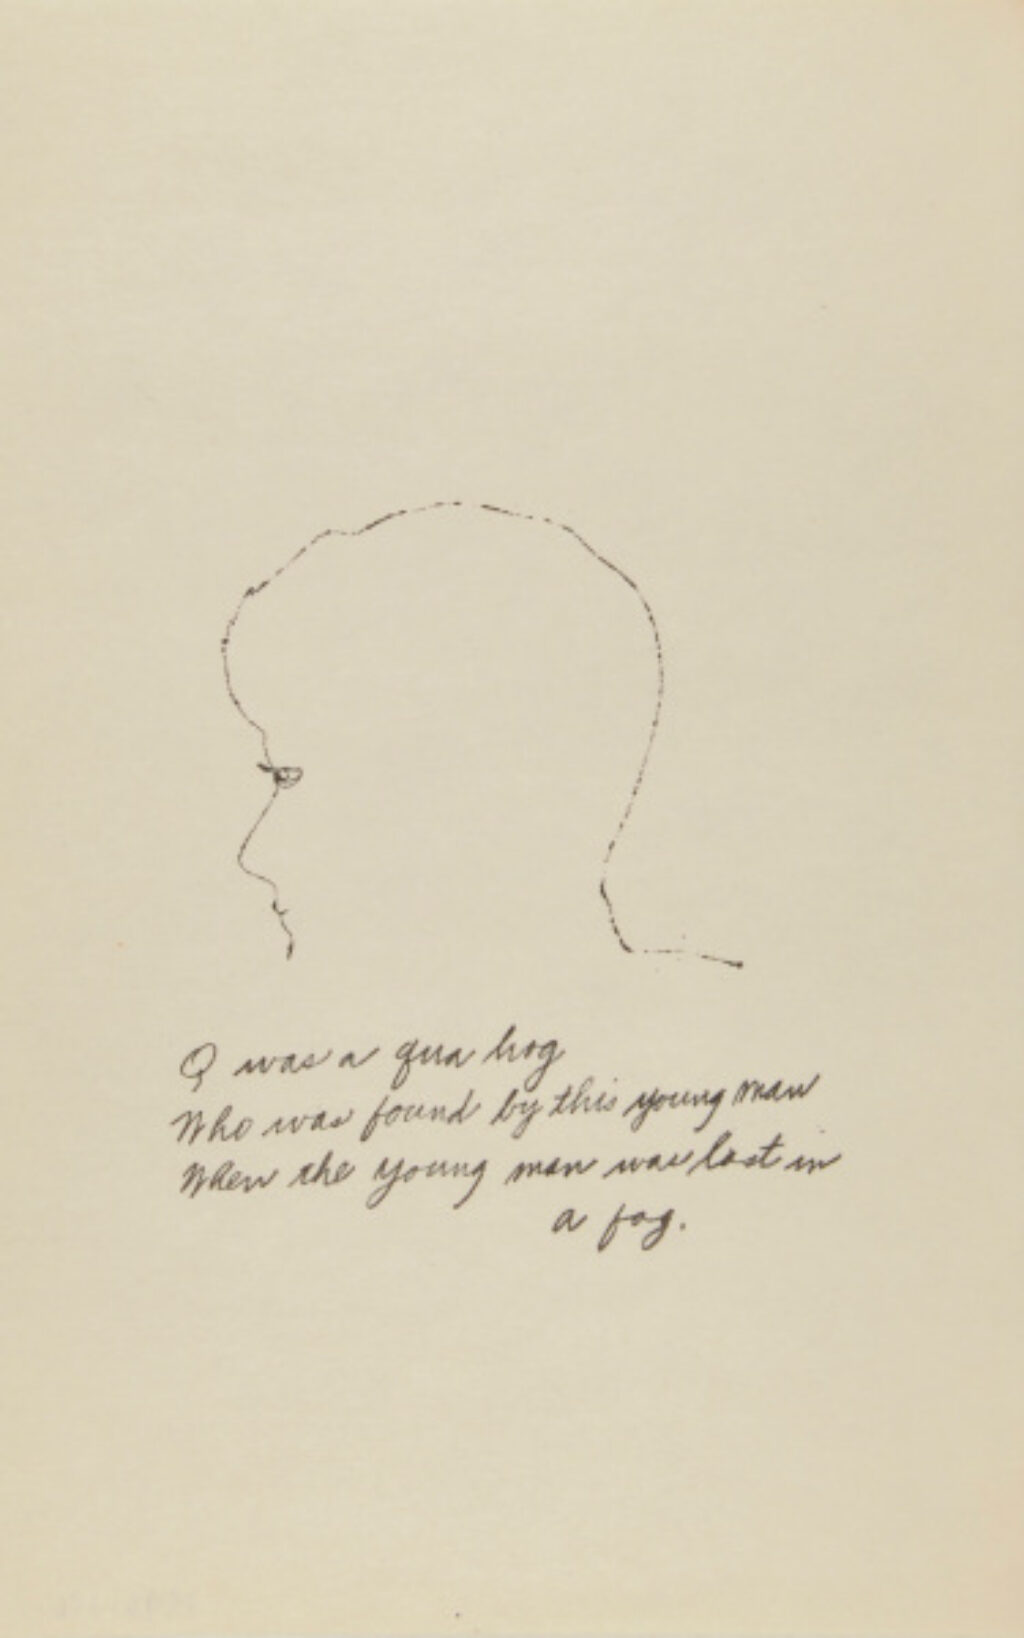 Q was a qua hog
Who was found by this young man
When the young man was lost in
a fog.